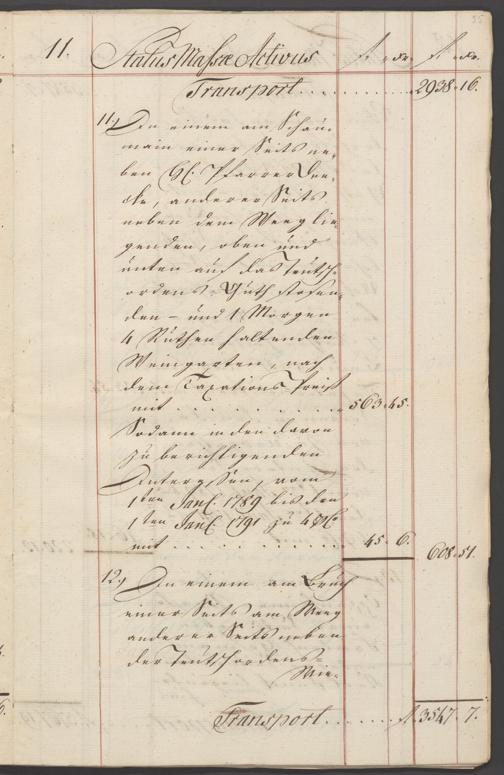 55
11. Status Massæ Activus f. xr. f. xr.
Transport . . . . . . . . . 2938. 16.
11.) In einem am Schön-
main einer Seits ne-
ben H. Pfarrer
cke, anderer Seits
neben dem Weeg lie-
genden, oben und
unten auf das Teutsch-
ordens-Guth stosen-
den - und 1 Morgen
4 Ruthen haltenden
Weingarten, nach
dem Taxations Preiß
mit . . . . . . . . 563. 45.
Sodann in den davon
zu berichtigenden
Interessen, vom
1ten Jan. 1789 bis den
1ten Jan. 1791 zu 4 pC.
mit . . . . . . . . 45. 6. 608. 51.
12.) In einem am
einer Seits am Weeg
anderer Seits neben
der Teutschordens-
Wie-
Transport . . . . . . . f. 3547. 7.